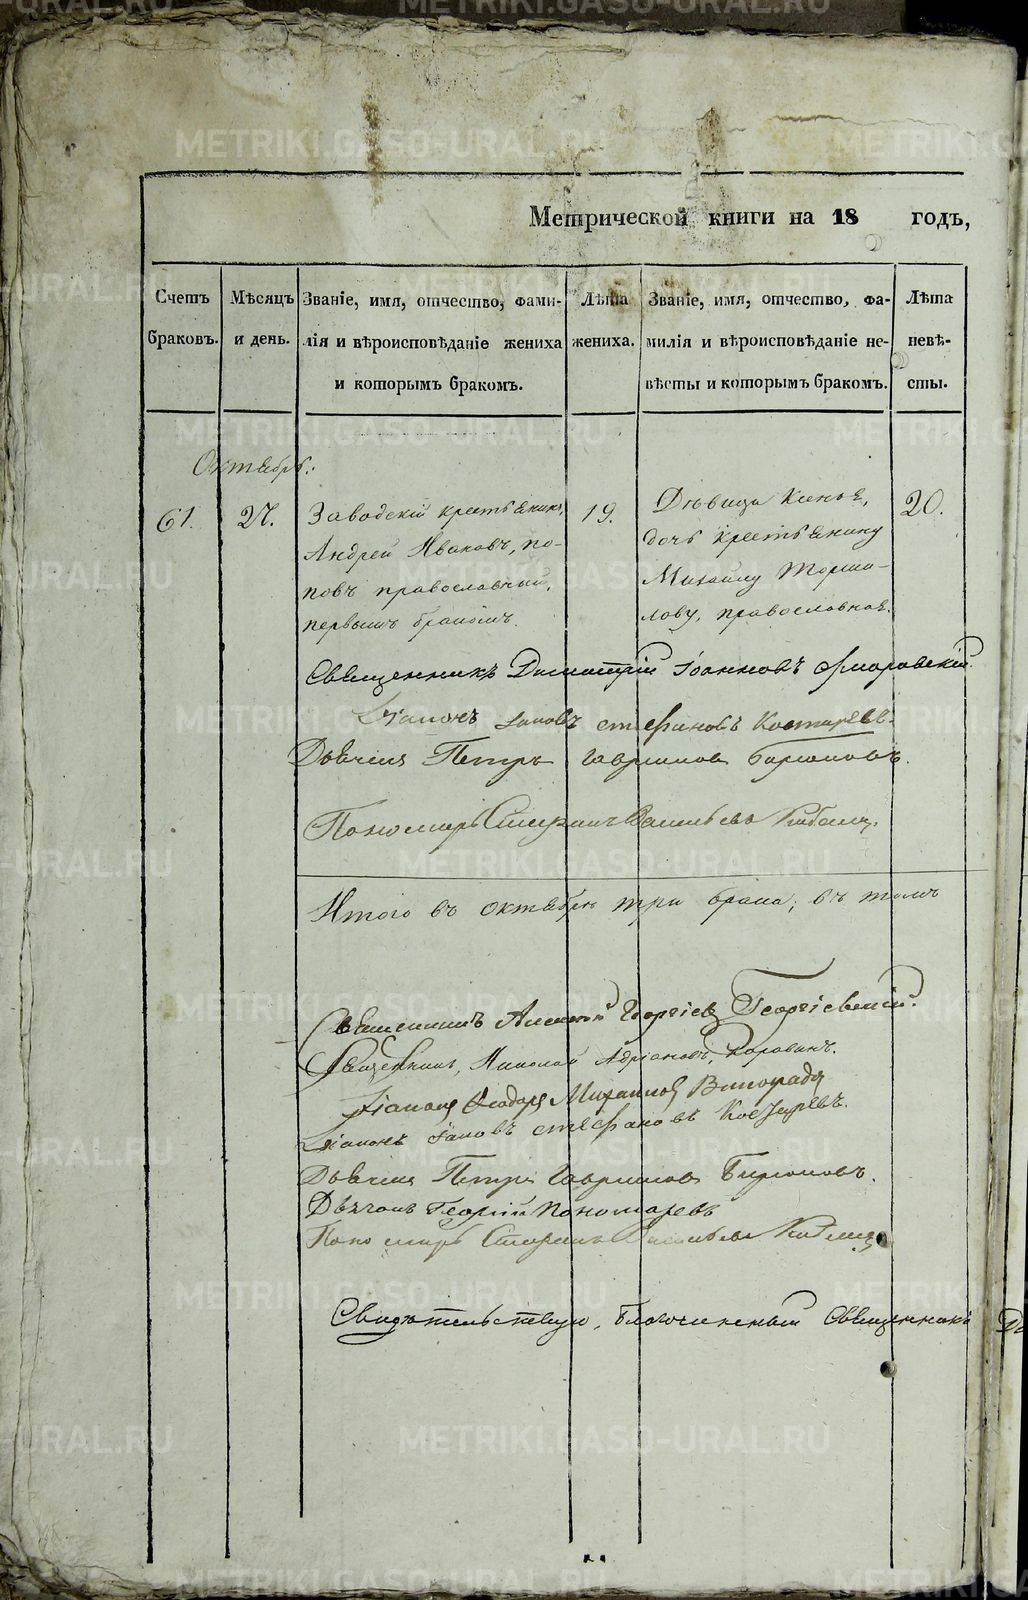 Метрической книги на 18 годъ,
Счетъ браковъ.
Мѣсяцъ и день.
Званіе, имя, отчество, фами-
лія и вѣроисповѣданіе жениха
и которымъ бракомъ.
Лѣта
жениха.
Званіе, имя, отчество, фа-
милія и вѣроисповѣданіе не-
вѣсты и которымъ бракомъ.
Лѣта
невѣ-
сты.
Октябрь:
61.
27.
Заводскій крестьянинъ,
Андрей Ивановъ, по-
повъ православный,
первымъ бракомъ.
19.
Дѣвица
дочь крестьянину
Михаилу
лову, православная.
20.
Священникъ Димитрій Іоанновъ
Діаконъ Іаковъ Стефановъ Костаревъ.
Дьячекъ Петръ Гавриловъ Бирюковъ.
Пономарь Стефанъ Васильевъ
Итого въ октябрѣ три брака; въ томъ
Священникъ Алексей Георгіевъ Георгіевскій.
Священникъ, Николай Адріановъ, Коровинъ.
Діаконъ Ѳеодоръ Михаиловъ Виноградовъ
Діаконъ Іаковъ Стефановъ Костаревъ.
Дьячекъ Петръ Гавриловъ Бирюковъ.
Дьячокъ Георгій Пономаревъ
Пономарь Стефанъ Васильевъ
Свидѣтельствую, Благочинный Священникъ
METRIKI.GASO-URAL.RU